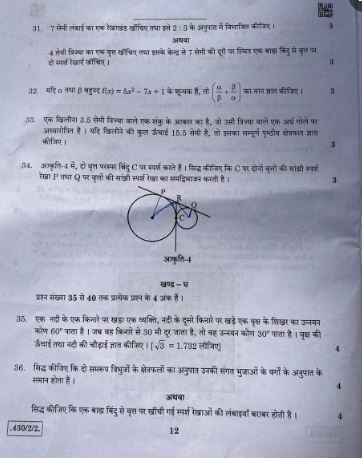 31. 7 सेमी लंबाई का एक रेखाखंड खींचिए तथा इसे 2 : 3 के अनुपात में विभाजित कीजिए । 3
अथवा
4 सेमी त्रिज्या का एक वृत्त खींचिए तथा इसके केन्द्र से 7 सेमी की दूरी पर स्थित एक बाह्य बिंदु से वृत्त पर
दो स्पर्श रेखाएँ खींचिए ।
32. यदि α तथा β बहुपद f(x) = 5x² – 7x + 1 के शून्यक हैं, तो (α/β + β/α) का मान ज्ञात कीजिए । 3
33. एक खिलौना 3.5 सेमी त्रिज्या वाले एक शंकु के आकार का है, जो उसी त्रिज्या वाले एक अर्ध गोले पर
अध्यारोपित है । यदि खिलौने की कुल ऊँचाई 15.5 सेमी है, तो इसका सम्पूर्ण पृष्ठीय क्षेत्रफल ज्ञात
कीजिए । 3
34. आकृति-4 में, दो वृत्त परस्पर बिंदु C पर स्पर्श करते हैं । सिद्ध कीजिए कि C पर दोनों वृत्तों की सांझी स्पर्श
रेखा P तथा Q पर वृत्तों की सांझी स्पर्श रेखा का समद्विभाजन करती है । 3
P
R
Q
C
आकृति-4
खण्ड – घ
प्रश्न संख्या 35 से 40 तक प्रत्येक प्रश्न के 4 अंक हैं ।
35. एक नदी के एक किनारे पर खड़ा एक व्यक्ति, नदी के दूसरे किनारे पर खड़े एक वृक्ष के शिखर का उन्नयन
कोण 60° पाता है । जब वह किनारे से 30 मी दूर जाता है, तो वह उन्नयन कोण 30° पाता है । वृक्ष की
ऊँचाई तथा नदी की चौड़ाई ज्ञात कीजिए । [√3 = 1.732 लीजिए] 4
36. सिद्ध कीजिए कि दो समरूप त्रिभुजों के क्षेत्रफलों का अनुपात उनकी संगत भुजाओं के वर्गों के अनुपात के
समान होता है । 4
अथवा
सिद्ध कीजिए कि एक बाह्य बिंदु से वृत्त पर खींची गई स्पर्श रेखाओं की लंबाइयाँ बराबर होती है । 4
.430/2/2. 12